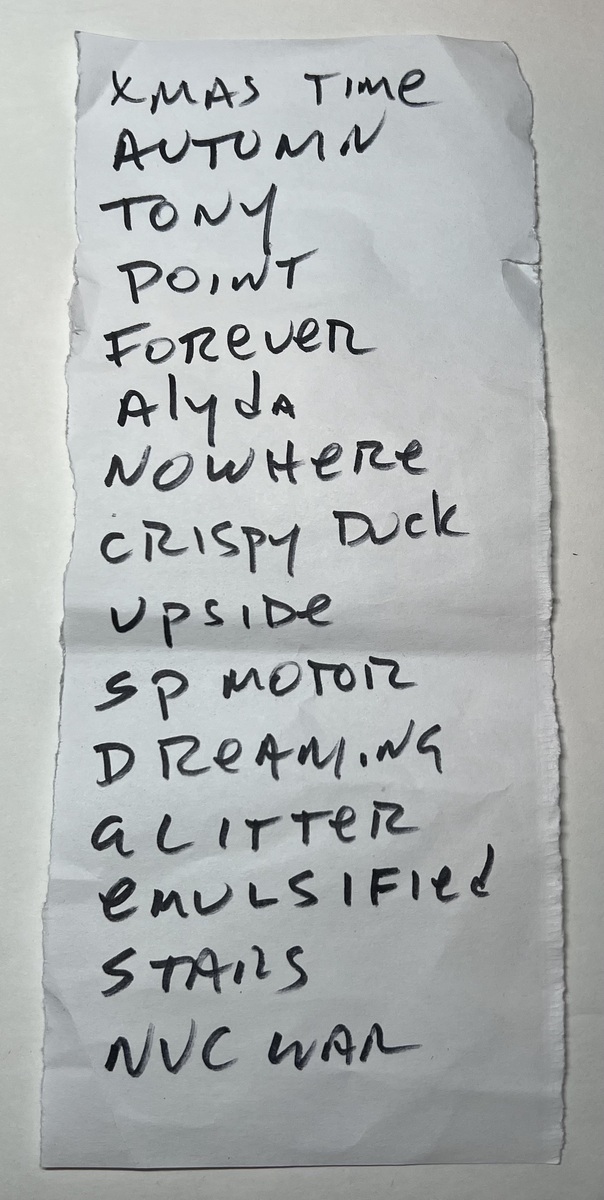 XMAS TIME
AUTUMN
TONY
POINT
FOREVER
Alyda
NOWHERE
CRISPY DUCK
UPSIDE
SP MOTOR
DREAMING
GLITTER
EMULSIFIED
STARS
NUC WAR